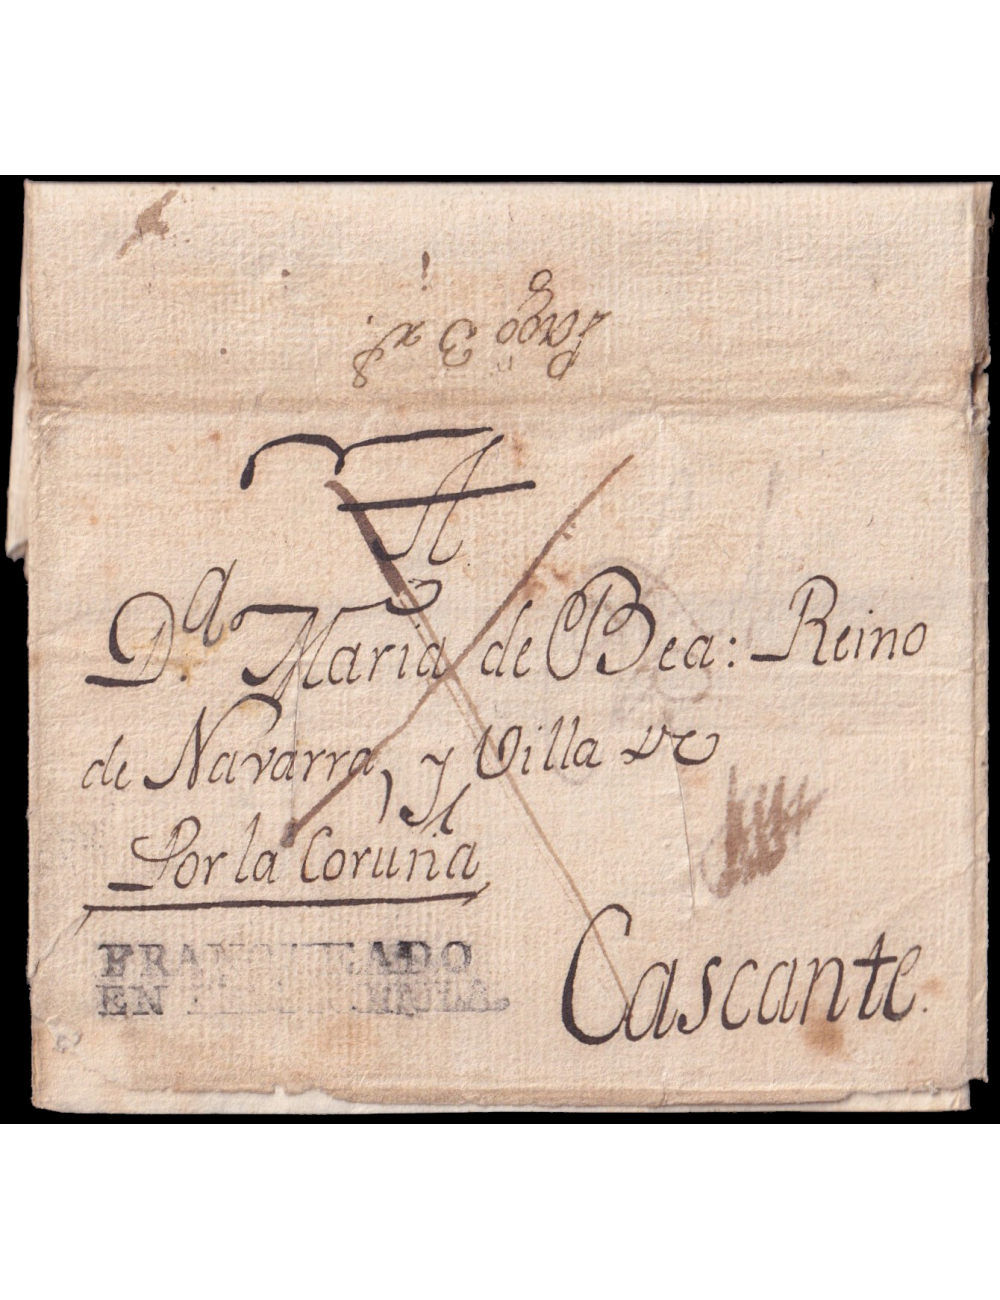 Pago 3 rs
A
Da. Maria de Bea: Reino
de Navarra, y Villa
Por la Coruña
FRANQUEADO
EN
Cascante.